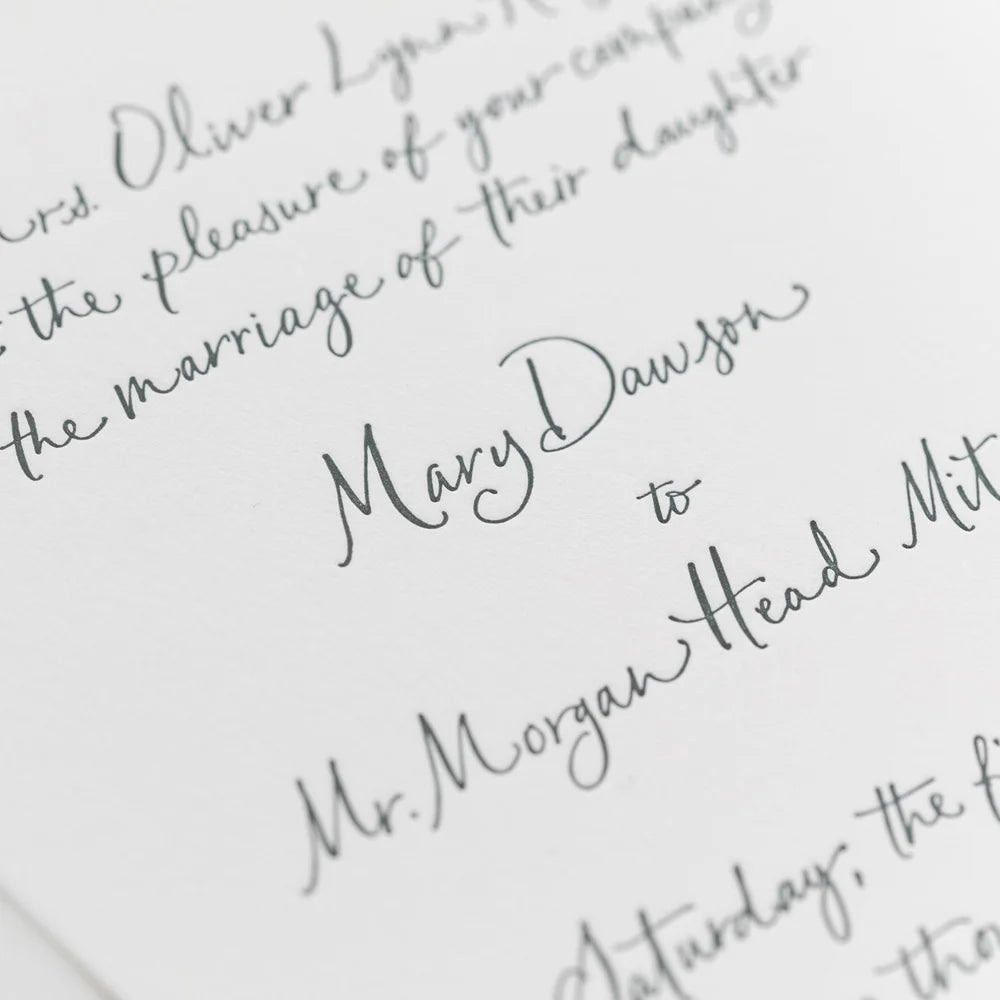 Oliver Lynn
the pleasure of your company
the marriage of their daughter
Mary Dawson
to
Mr. Morgan Head Mit
Saturday, the fi
tho